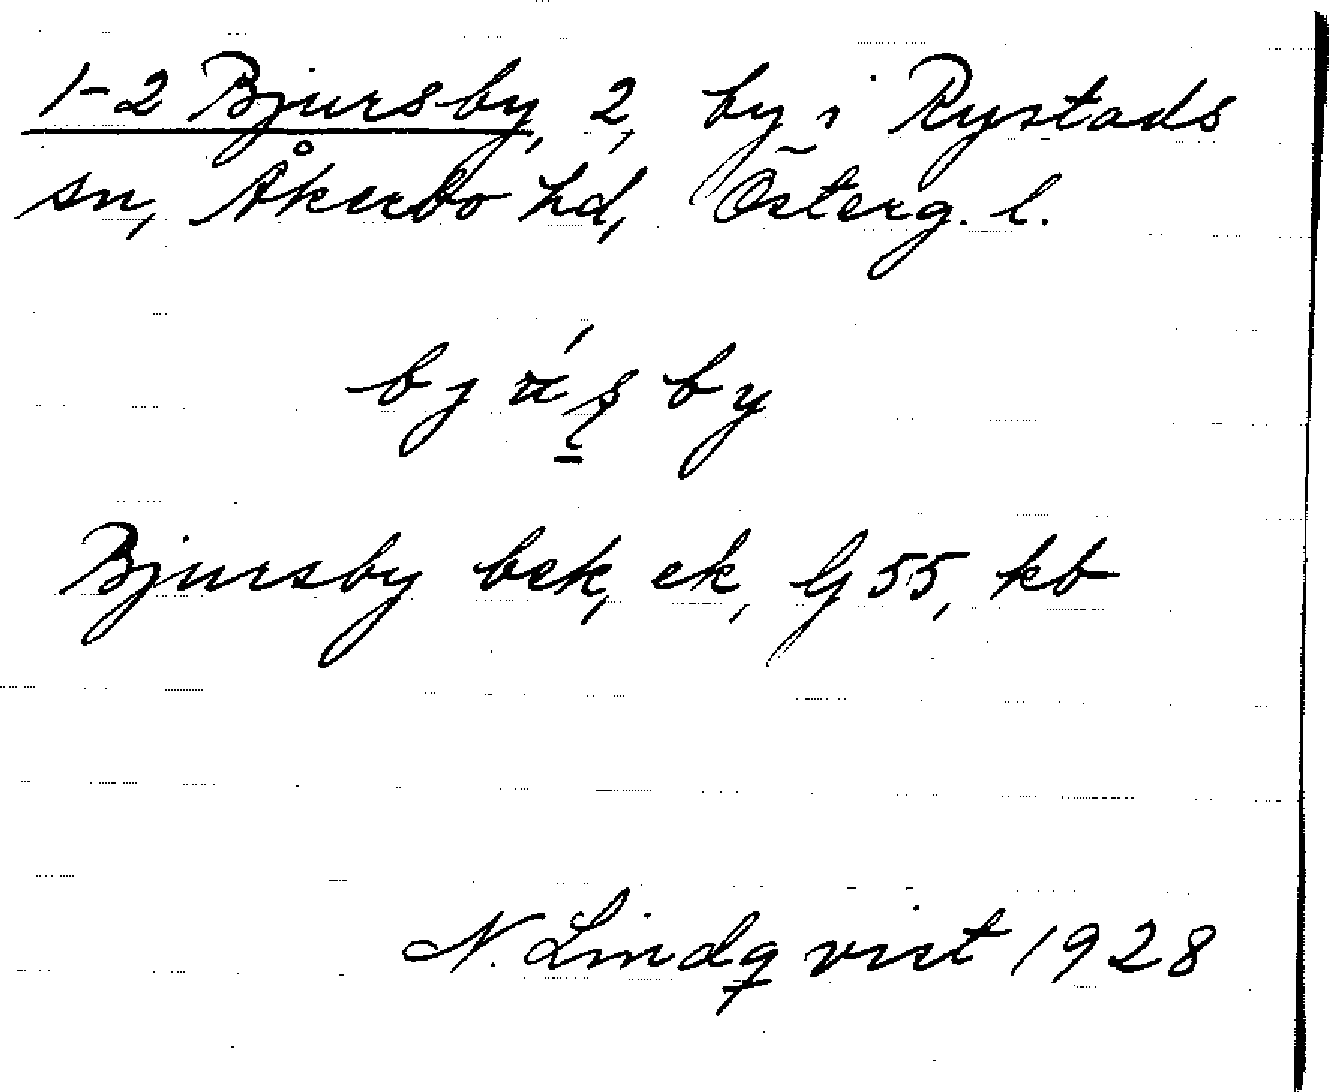 1-2 Bjursby, 2, by i Rystads
sn, Åkerbo hd, Österg. l.
Bjursby bek, ek, G 55, kb
N. Lindqvist 1928